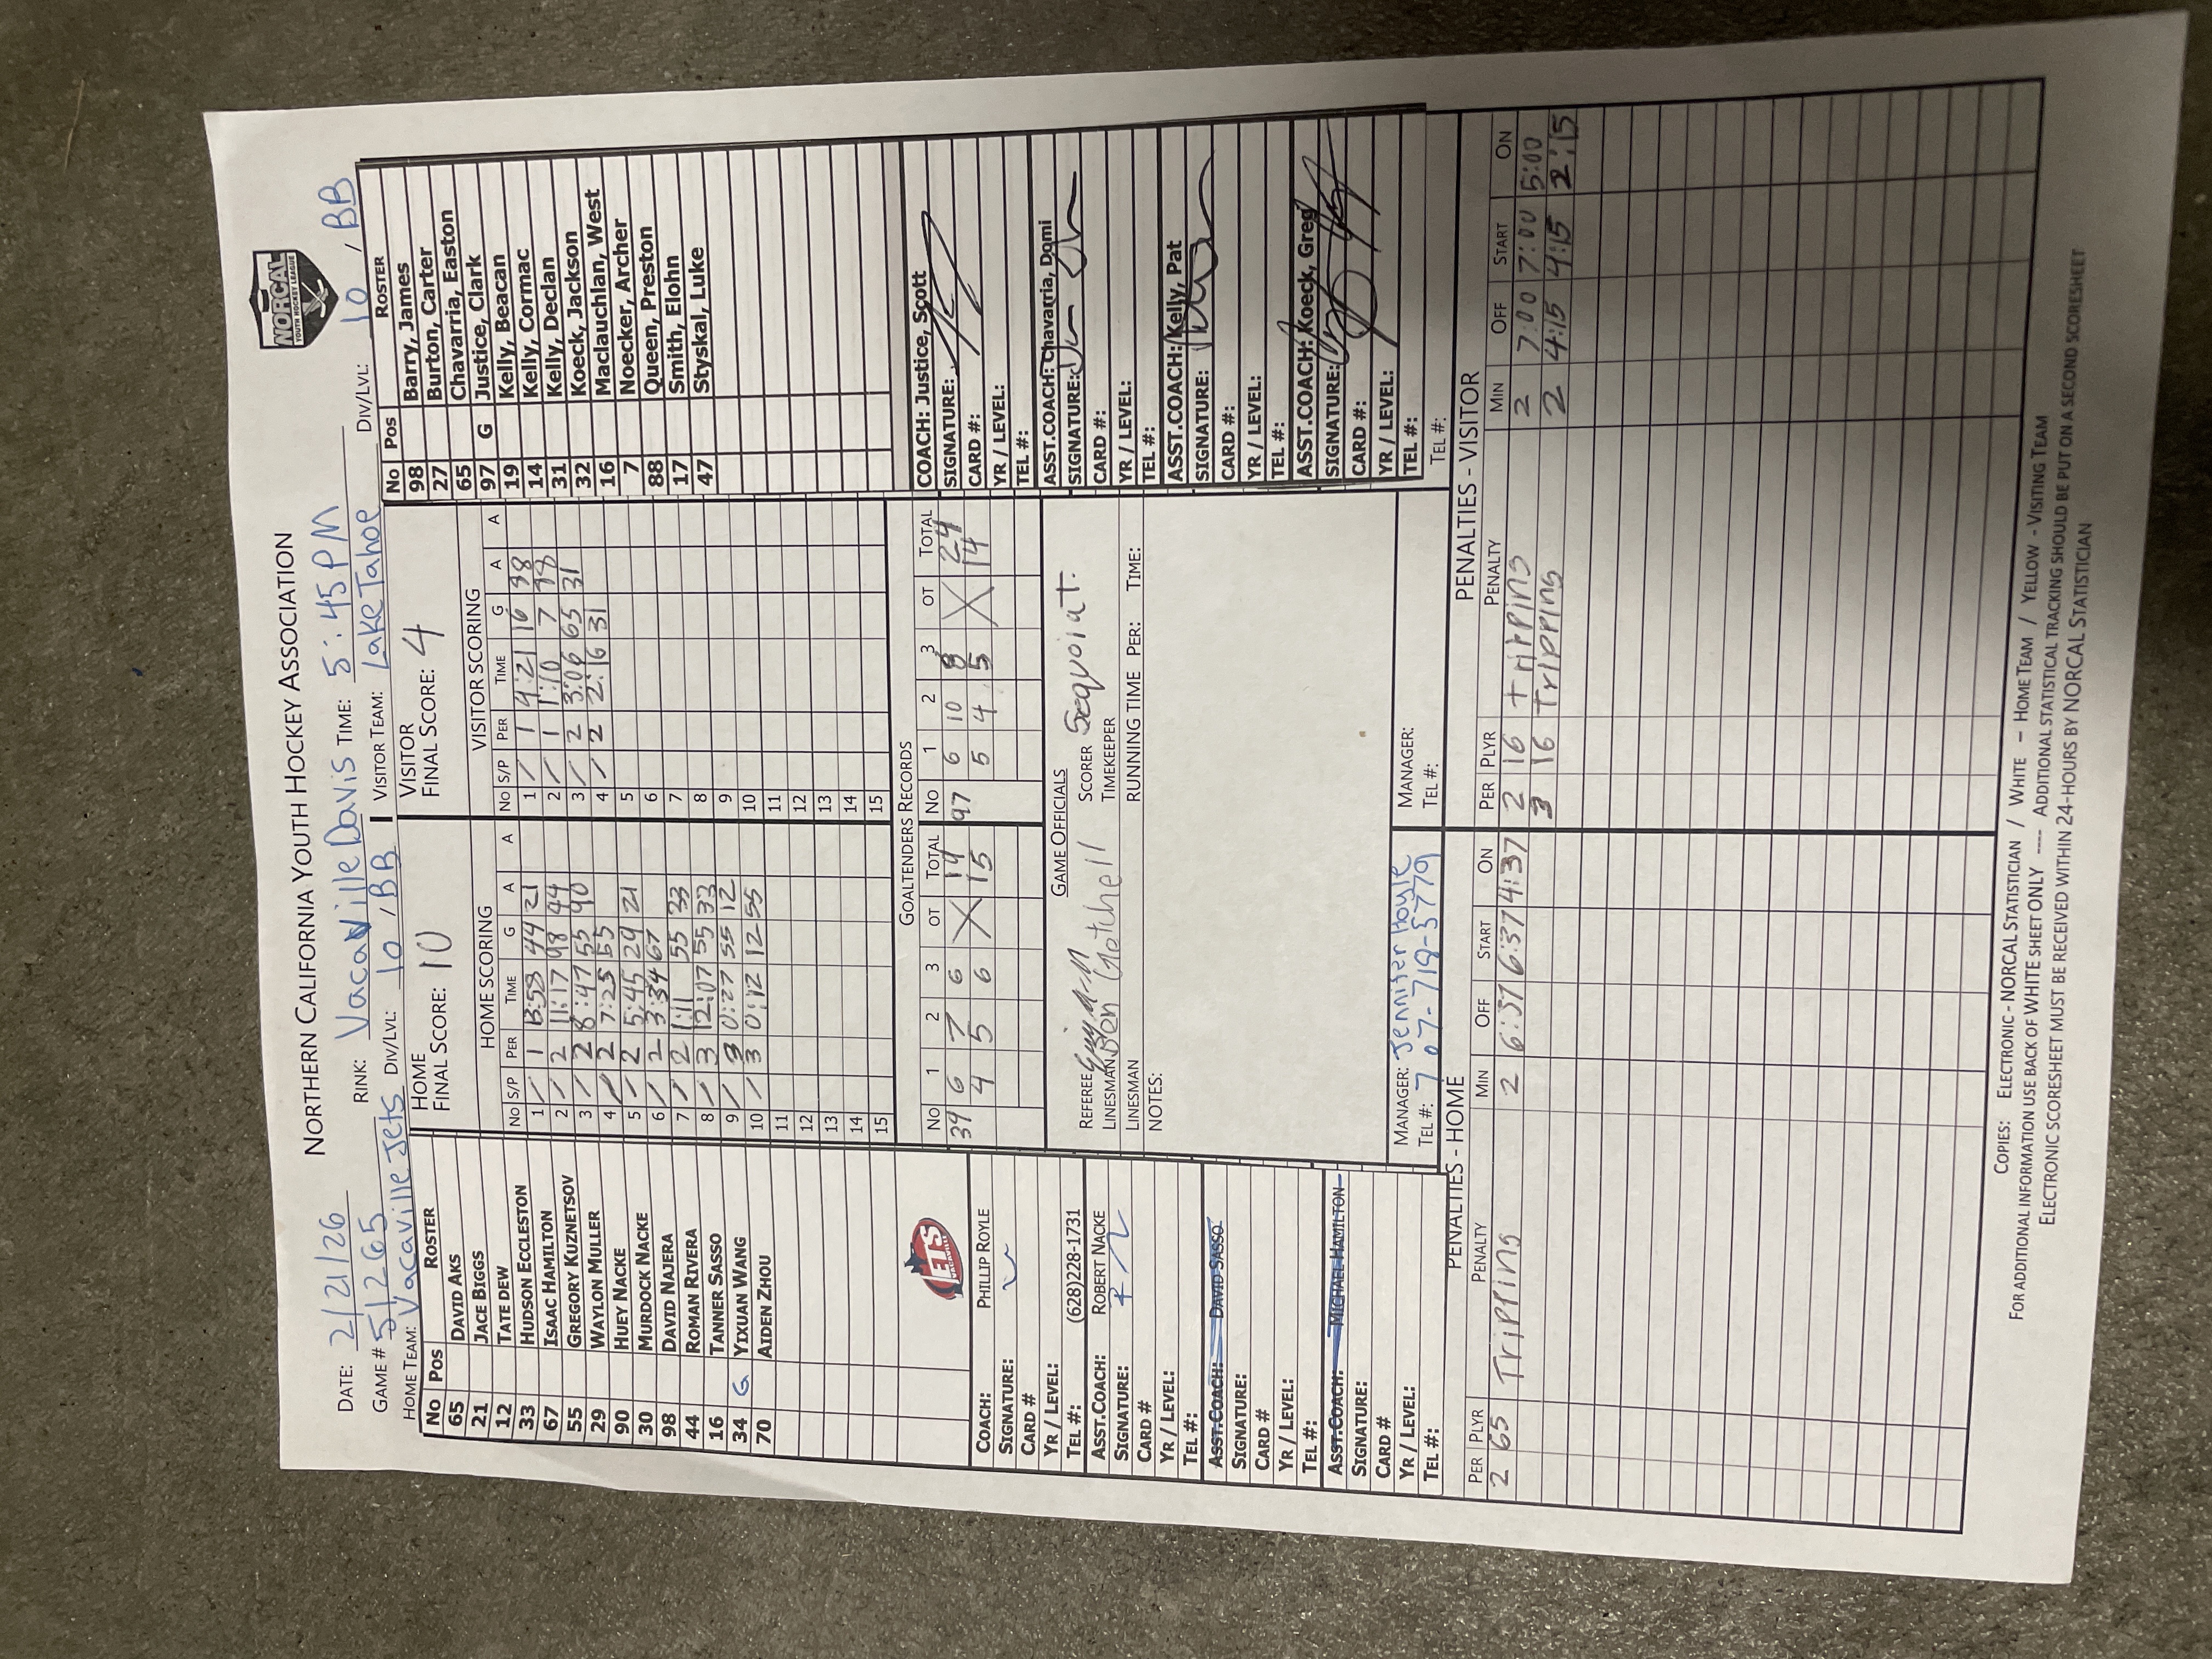 NORTHERN CALIFORNIA YOUTH HOCKEY ASSOCIATION
NORCAL
YOUTH HOCKEY LEAGUE
DATE: 2/21/26 RINK: Vacaville Davis TIME: 5:45PM
GAME # 51265
HOME TEAM: Vacaville Jets DIV/LVL: 10 / BB VISITOR TEAM: Lake Tahoe DIV/LVL: 10 / BB
No Pos ROSTER
65 DAVID AKS
21 JACE BIGGS
12 TATE DEW
33 HUDSON ECCLESTON
67 ISAAC HAMILTON
55 GREGORY KUZNETSOV
29 WAYLON MULLER
90 HUEY NACKE
30 MURDOCK NACKE
98 DAVID NAJERA
44 ROMAN RIVERA
16 TANNER SASSO
34 G YIXUAN WANG
70 AIDEN ZHOU
JETS
VACAVILLE
COACH: PHILLIP ROYLE
SIGNATURE:
CARD #
YR / LEVEL:
TEL #: (628)228-1731
ASST.COACH: ROBERT NACKE
SIGNATURE:
CARD #
YR / LEVEL:
TEL #:
ASST.COACH: DAVID SASSO
SIGNATURE:
CARD #
YR / LEVEL:
TEL #:
ASST.COACH: MICHAEL HAMILTON
SIGNATURE:
CARD #
YR / LEVEL:
TEL #:
HOME
FINAL SCORE: 10
HOME SCORING
No S/P PER TIME G A A
1 / 1 13:53 44 21
2 / 2 11:17 98 44
3 / 2 8:47 55 90
4 / 2 7:25 55
5 / 2 5:45 29 21
6 / 2 3:34 67
7 / 2 1:11 55 33
8 / 3 12:07 55 33
9 / 3 0:27 55 12
10 / 3 0:12 12 55
11
12
13
14
15
VISITOR
FINAL SCORE: 4
VISITOR SCORING
No S/P PER TIME G A A
1 / 1 4:21 16 98
2 / 1 1:10 7 98
3 / 2 3:06 65 31
4 / 2 2:16 31
5
6
7
8
9
10
11
12
13
14
15
GOALTENDERS RECORDS
No 1 2 3 OT TOTAL No 1 2 3 OT TOTAL
34 6 7 6 X 97 6 10 8 X 24
4 5 6 15 5 4 5 14
GAME OFFICIALS
REFEREE SCORER Sequoia T.
LINESMAN Ben Getchell TIMEKEEPER
LINESMAN RUNNING TIME PER: TIME:
NOTES:
MANAGER: Jennifer Hoyle
TEL #: 707-719-5779
MANAGER:
TEL #:
No Pos ROSTER
98 Barry, James
27 Burton, Carter
65 Chavarria, Easton
97 G Justice, Clark
19 Kelly, Beacan
14 Kelly, Cormac
31 Kelly, Declan
32 Koeck, Jackson
16 Maclauchlan, West
7 Noecker, Archer
88 Queen, Preston
17 Smith, Elohn
47 Styskal, Luke
COACH: Justice, Scott
SIGNATURE:
CARD #:
YR / LEVEL:
TEL #:
ASST.COACH: Chavarria, Domi
SIGNATURE:
CARD #:
YR / LEVEL:
TEL #:
ASST.COACH: Kelly, Pat
SIGNATURE:
CARD #:
YR / LEVEL:
TEL #:
ASST.COACH: Koeck, Greg
SIGNATURE:
CARD #:
YR / LEVEL:
TEL #:
TEL #:
PENALTIES - HOME
PER PLYR PENALTY MIN OFF START ON
2 65 Tripping 2 6:37 6:37 4:37
PENALTIES - VISITOR
PER PLYR PENALTY MIN OFF START ON
2 16 tripping 2 7:00 7:00 5:00
3 16 Tripping 2 4:15 4:15 2:15
COPIES: ELECTRONIC - NORCAL STATISTICIAN / WHITE – HOME TEAM / YELLOW - VISITING TEAM
FOR ADDITIONAL INFORMATION USE BACK OF WHITE SHEET ONLY ---- ADDITIONAL STATISTICAL TRACKING SHOULD BE PUT ON A SECOND SCORESHEET
ELECTRONIC SCORESHEET MUST BE RECEIVED WITHIN 24-HOURS BY NORCAL STATISTICIAN